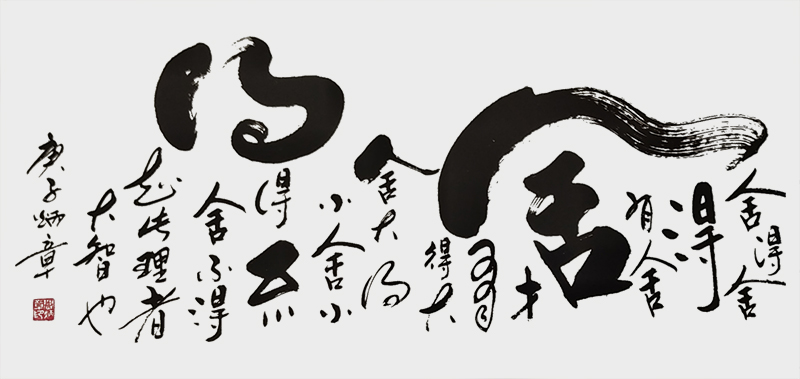 舍得舍
得
有舍
舍才
有
得大
舍大得
小人舍小
得
得不
舍不得
此理者
大智也
庚子炳章